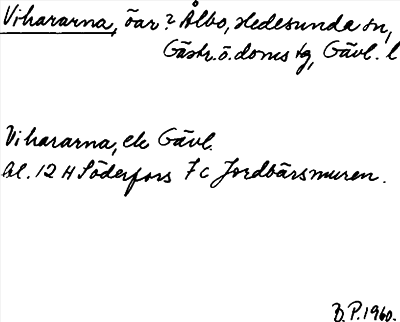 Vihararna, öar? Ålbo, Hedesunda sn,
Gästr. ö. doms tg, Gävl. l
Vihararna, ek Gävl.
bl. 12 H Söderfors 7 c Jordbärsmuren.
B.P. 1960.